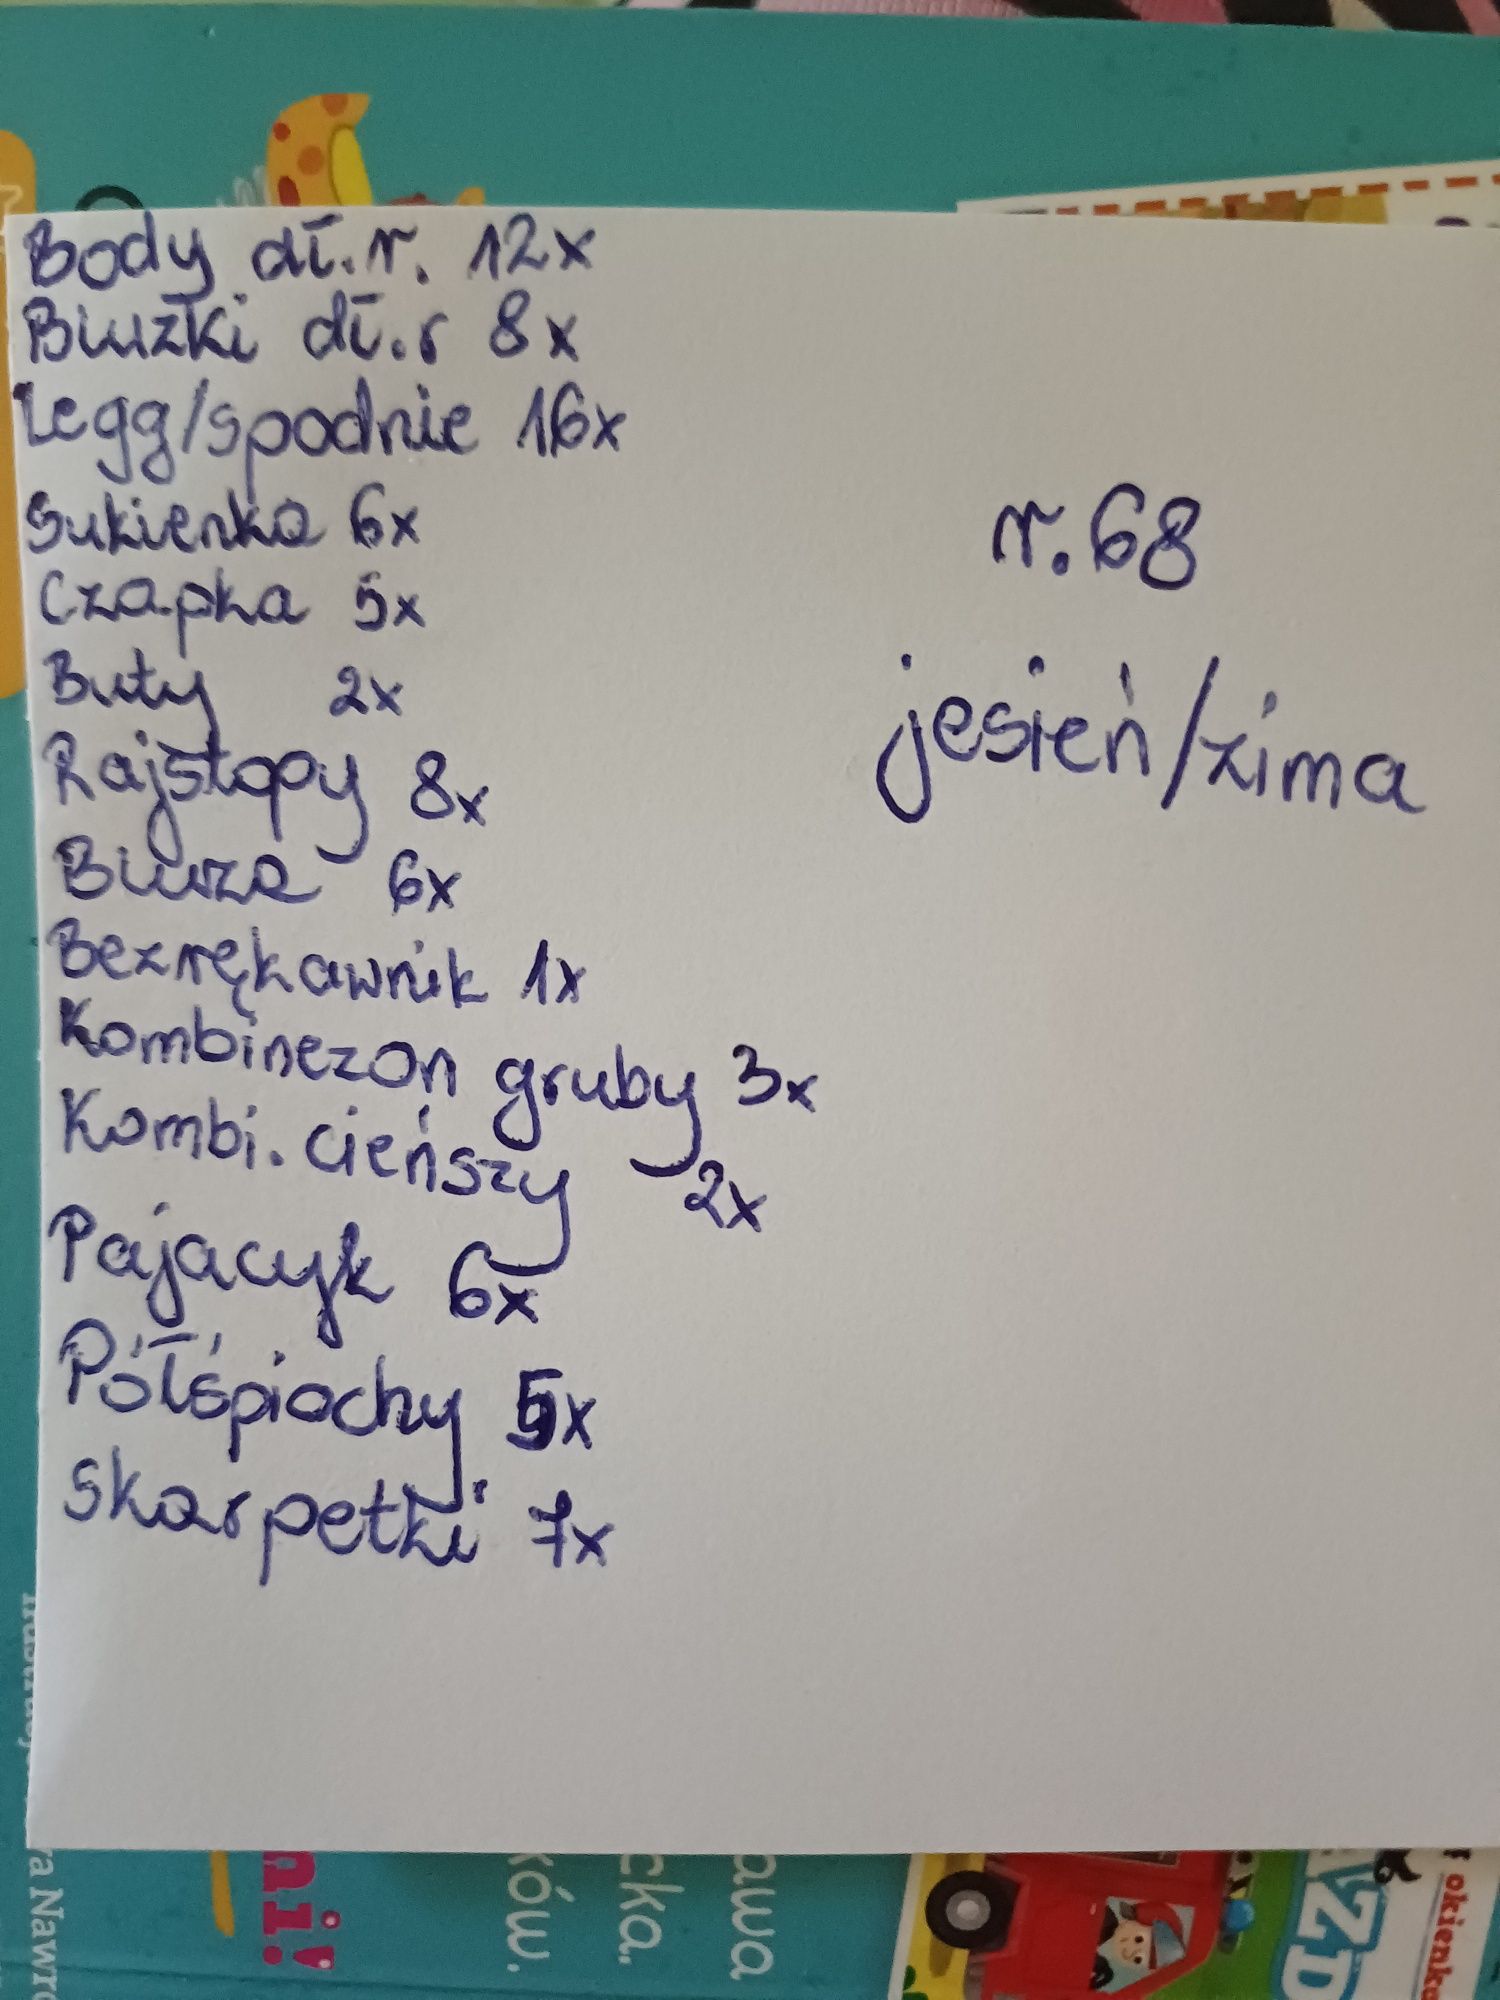 Body dł.r. 12x
Bluzki dł.r 8x
Legg/spodnie 16x
Sukienka 6x
Czapka 5x
Buty 2x
Rajstopy 8x
Bluza 6x
Bezrękawnik 1x
Kombinezon gruby 3x
Kombi. cieńszy 2x
Pajacyk 6x
Półśpiochy 5x
Skarpetki 7x
r. 68
jesień/zima
ni!
ków.
cka.
awa
ZD
okienka
ra Nawro